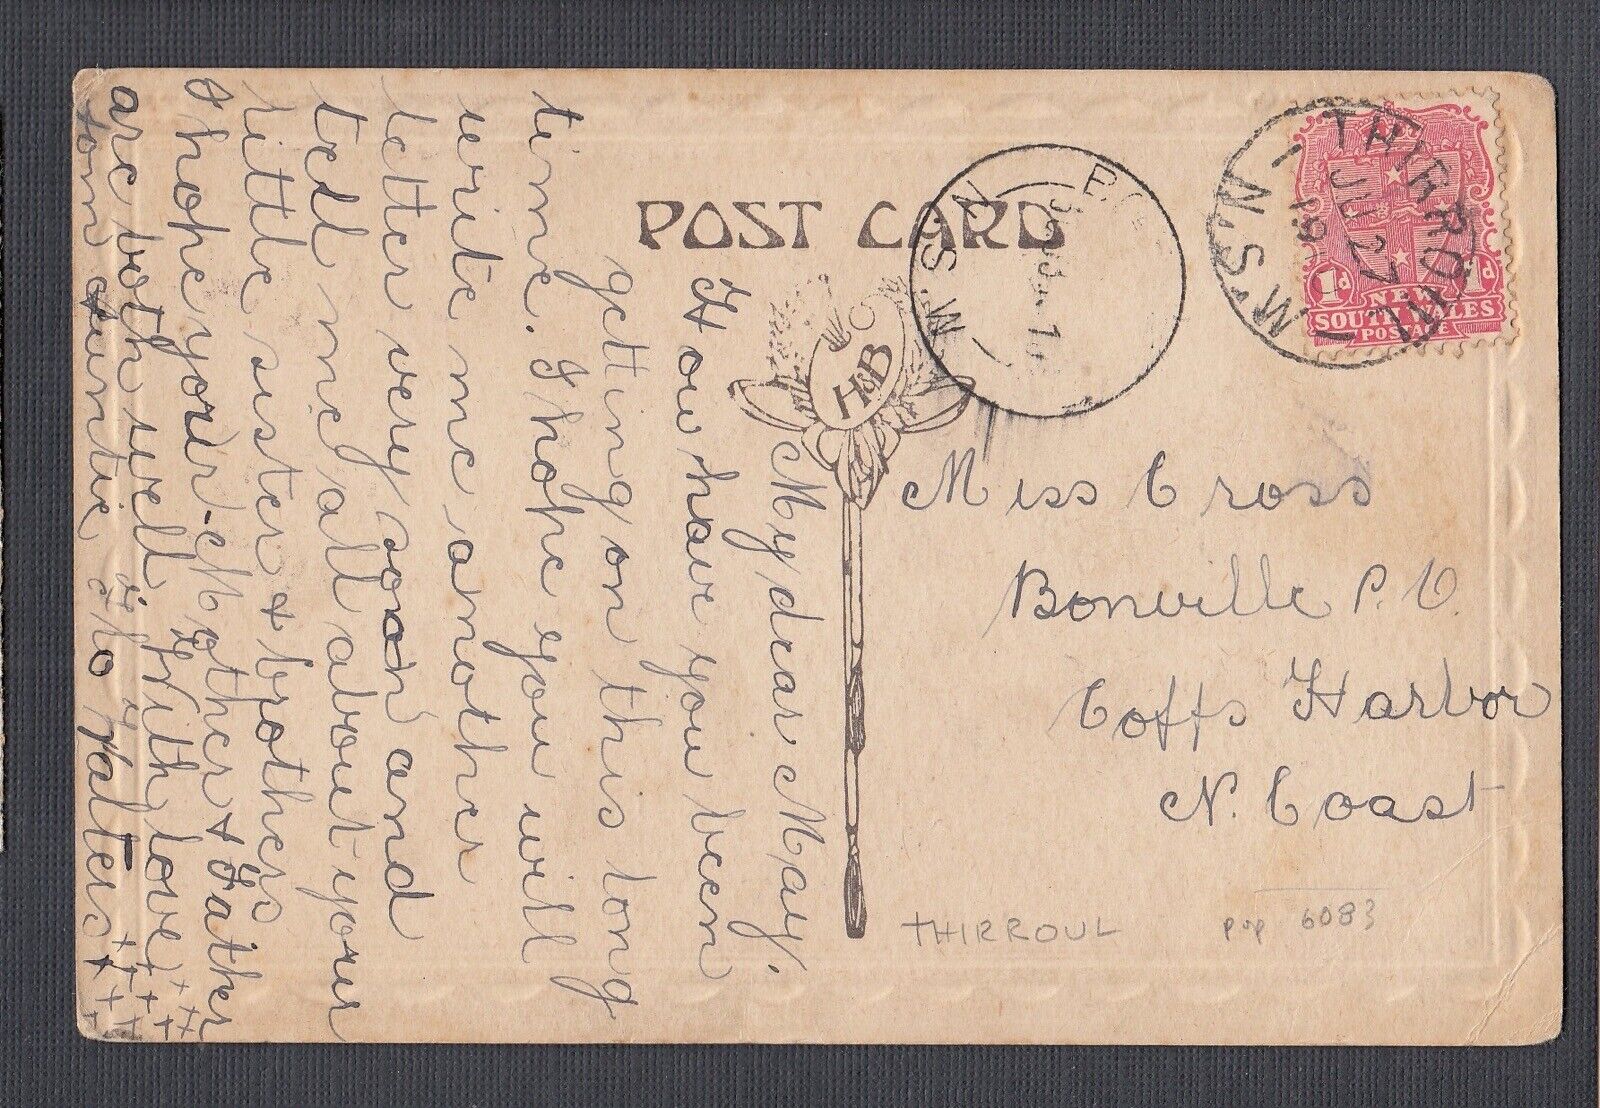 POST CARD
H&B
THIRROUL
JU 27
19
N.S.W
N.S.W
1d 1d
NEW
SOUTH WALES
POSTAGE
My dear May.
How have you been
getting on this long
time. I hope you will
write me another
letter very soon and
tell me all about your
little sister & brothers
I hope your Mother & Father
are both well. With love
from Auntie Flo Walters
Miss Cross
Bonville P.O.
Coffs Harbor
N. Coast
THIRROUL
pop 6083